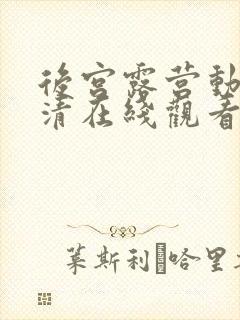 後宮露营動
清在綫觀看
葉斯利 哈里